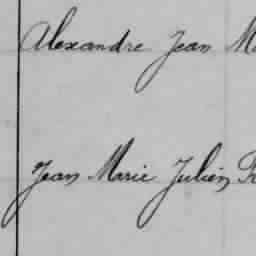 Alexandre Jean
Jean Marie Julien